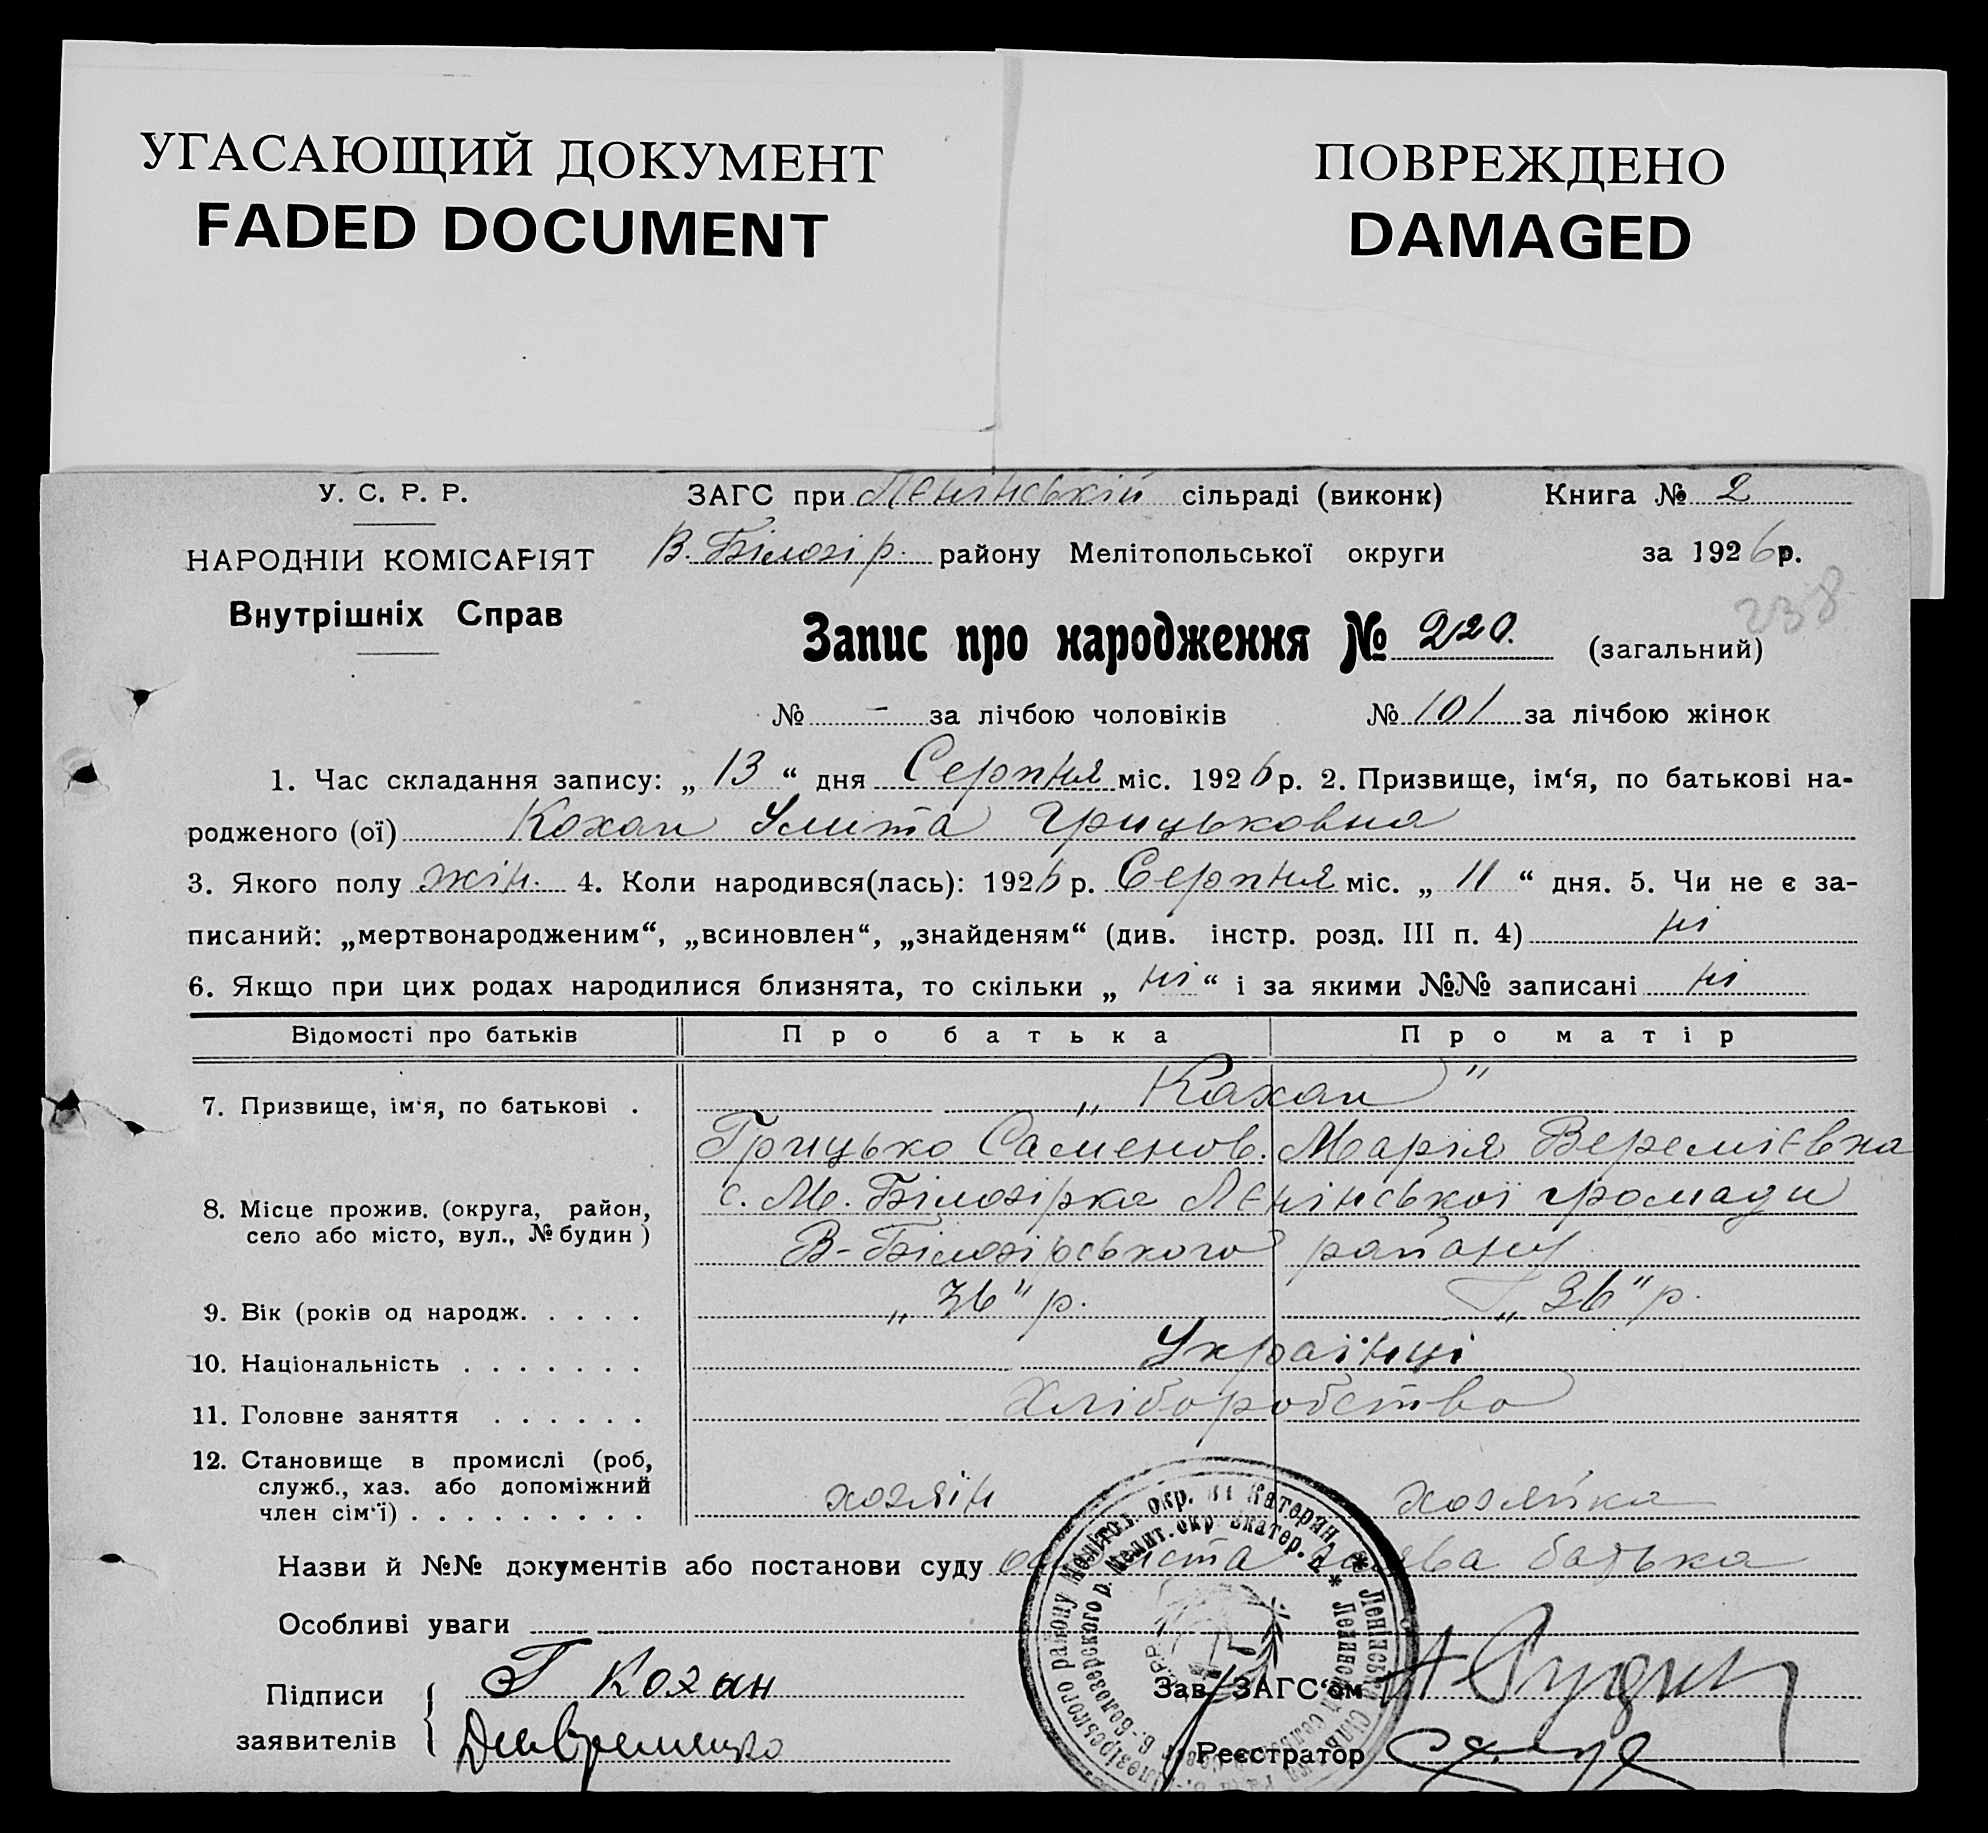 УГАСАЮЩИЙ ДОКУМЕНТ
FADED DOCUMENT
ПОВРЕЖДЕНО
DAMAGED
У. С. Р. Р.
НАРОДНІИ КОМІСАРІЯТ
Внутрішніх Справ
ЗАГС при Лєнінській сільраді (виконк) Книга № 2
В. Білозір. району Мелітопольської округи за 1926 р.
238
Запис про народження № 220. (загальний)
№ - за лічбою чоловіків № 101 за лічбою жінок
1. Час складання запису: „ 13 “ дня Серпня міс. 1926 р. 2. Призвище, ім‘я, по батькові на-
родженого (ої) Кохан Улита Грицьковна
3. Якого полу жін. 4. Коли народився(лась): 1926 р. Серпня міс. „ 11 “ дня. 5. Чи не є за-
писаний: „мертвонародженим“, „всиновлен“, „знайденям“ (див. інстр. розд. III п. 4) ні
6. Якщо при цих родах народилися близнята, то скільки „ ні “ і за якими №№ записані ні
Відомості про батьків Про батька Про матір
7. Призвище, ім‘я, по батькові . „ Кахан "
Грицько Саменов. Марія Веремієвна
8. Місце прожив. (округа, район, село або місто, вул., № будин) с. М. Білозірка Лєнінської громади
В-Білозірського району
9. Вік (років од народж. . . . . „ 36 " р. „ 36 " р.
10. Національність . . . . . . . Українці
11. Головне заняття . . . . . . Хліборобство
12. Становище в промислі (роб, служб., хаз. або допоміжний член сім‘ї) . . . . . . . . . хозяїн хозяйка
Назви й №№ документів або постанови суду заява батька
Особливі уваги
Підписи заявителів Г Кохан
Зав. ЗАГС‘ом
Реєстратор